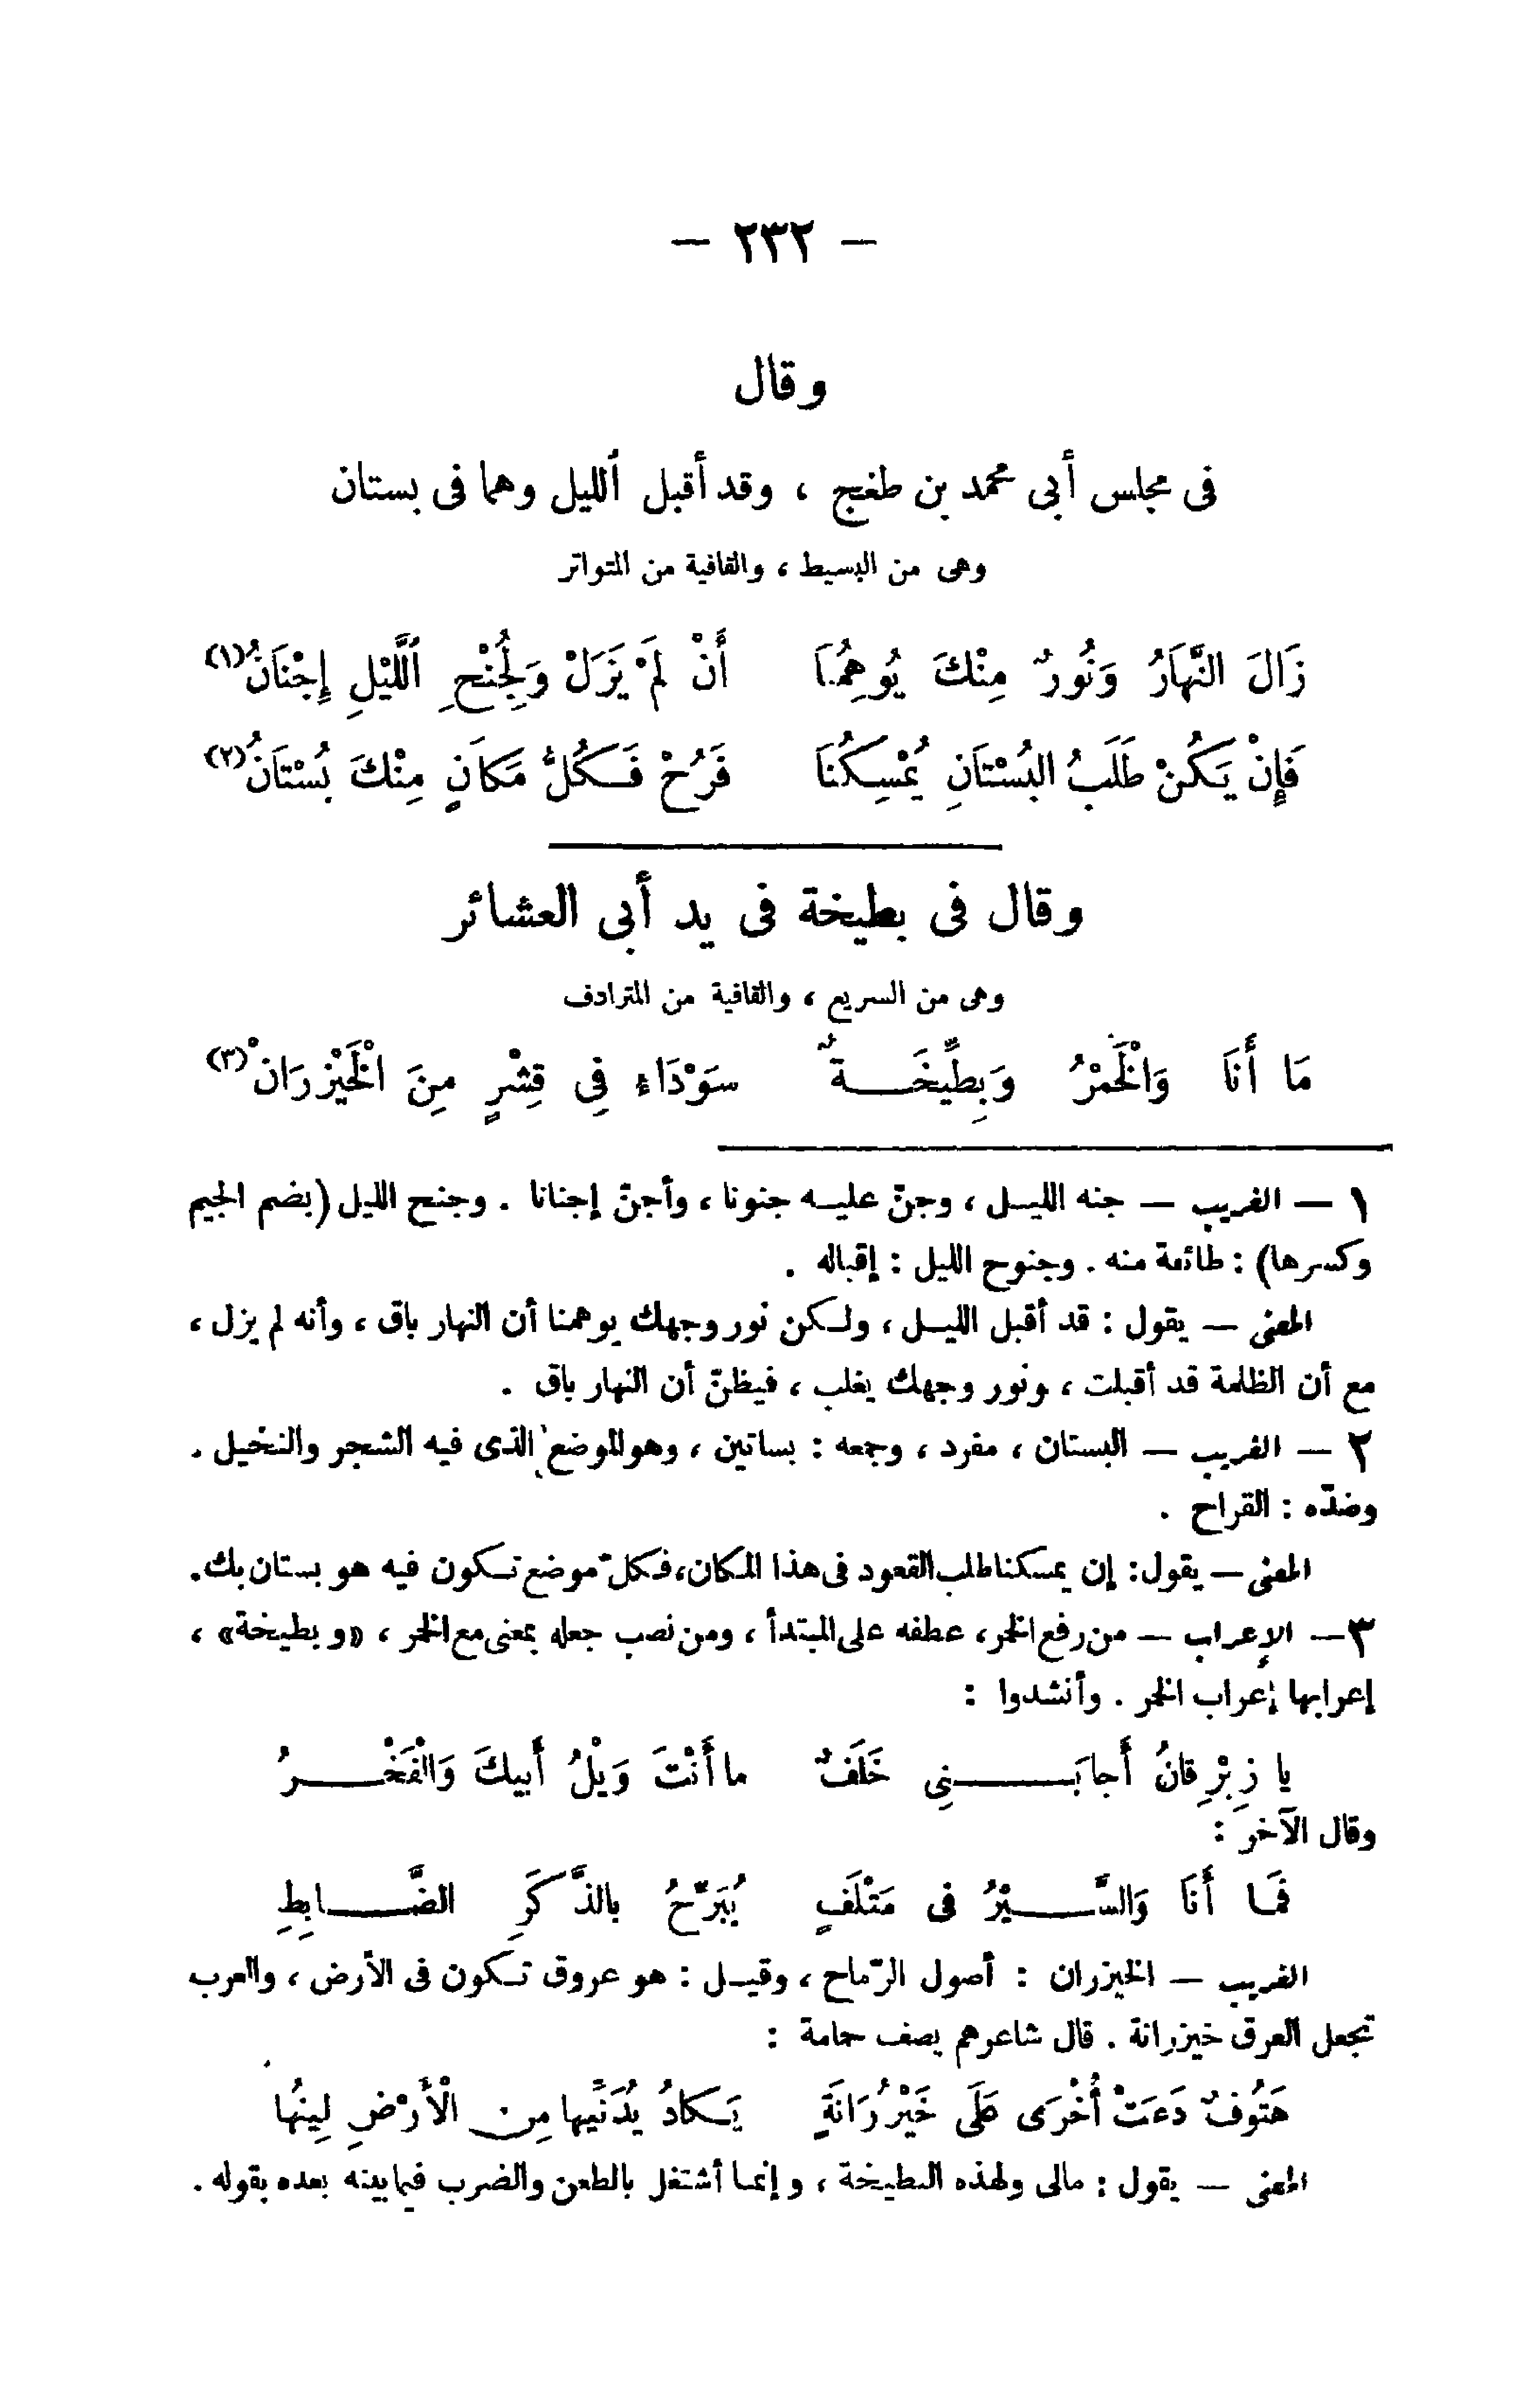 — ٢٣٢ —
وقال
فى مجلس أبى محمد بن طغج ، وقد أقبل ٱلليل وهما فى بستان
وهى من البسيط ، والقافية من المتواتر
زَالَ النَّهَارُ وَنُورٌ مِنْكَ يُوهِمُنَا أَنْ لَمْ يَزَلْ وَلِجُنْحِ ٱللَّيْلِ إِجْنَانُ(١)
فَإِنْ يَكُنْ طَلَبُ البُسْتَانِ يُمْسِكُنَا فَرُحْ فَكُلُّ مَكَانٍ مِنْكَ بُسْتَانُ(٢)
وقال فى بطيخة فى يد أبى العشائر
وهى من السريع ، والقافية من المترادف
مَا أَنَا وَالْخَمْرُ وَبِطِّيخَةٌ سَوْدَاءَ فِى قِشْرٍ مِنَ الْخَيْزرَانْ(٣)
١ — الغريب — جنه الليل ، وجنّ عليه جنونا ، وأجنّ إجنانا . وجنح الليل (بضم الجيم
وكسرها) : طائفة منه . وجنوح الليل : إقباله .
المعنى — يقول : قد أقبل الليل ، ولكن نور وجهك يوهمنا أن النهار باق ، وأنه لم يزل ،
مع أن الظلمة قد أقبلت ، ونور وجهك يغلب ، فيظنّ أن النهار باق .
٢ — الغريب — البستان ، مفرد ، وجمعه : بساتين ، وهو الموضع الذى فيه الشجر والنخيل .
وضدّه : القراح .
المعنى — يقول: إن يمسكنا طلب القعود فى هذا المكان، فكلّ موضع تكون فيه هو بستان بك.
٣ — الإعراب — من رفع الخمر، عطفه على المبتدأ ، ومن نصب جعله بمعنى مع الخمر ، «وبطيخة» ،
إعرابها إعراب الخمر . وأنشدوا :
يا زِبْرِقانُ أَجابَنِى خَلَفٌ ما أَنْتَ وَيْلُ أَبيكَ وَالْفَخْرُ
وقال الآخر :
فَمَا أَنَا وَالسَّيْرُ فى مَتْلَفٍ يُبَرِّحُ بالذَّكَرِ الضَّابِطِ
الغريب — الخيزران : أصول الرّماح ، وقيل : هو عروق تكون فى الأرض ، والعرب
تجعل العرق خيزرانة . قال شاعرهم يصف حمامة :
هَتُوفٌ دَعَتْ أُخْرَى عَلَى خَيْزُرَانَةٍ يَكادُ يُدَنِّيها مِن الْأَرْضِ لِينُها
المعنى — يقول : مالى ولهذه البطيخة ، وإنما أشتغل بالطعن والضرب فيما بينه بعده بقوله .